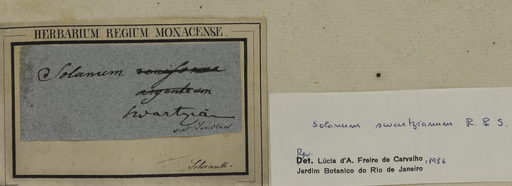 HERBARIUM REGIUM MONACENSE.
Solanum
argenteum
swartzian
Solanum swartzianum R. & S.
Rev.
Det. Lúcia d'A. Freire de Carvalho, 1986
Jardim Botanico do Rio de Janeiro